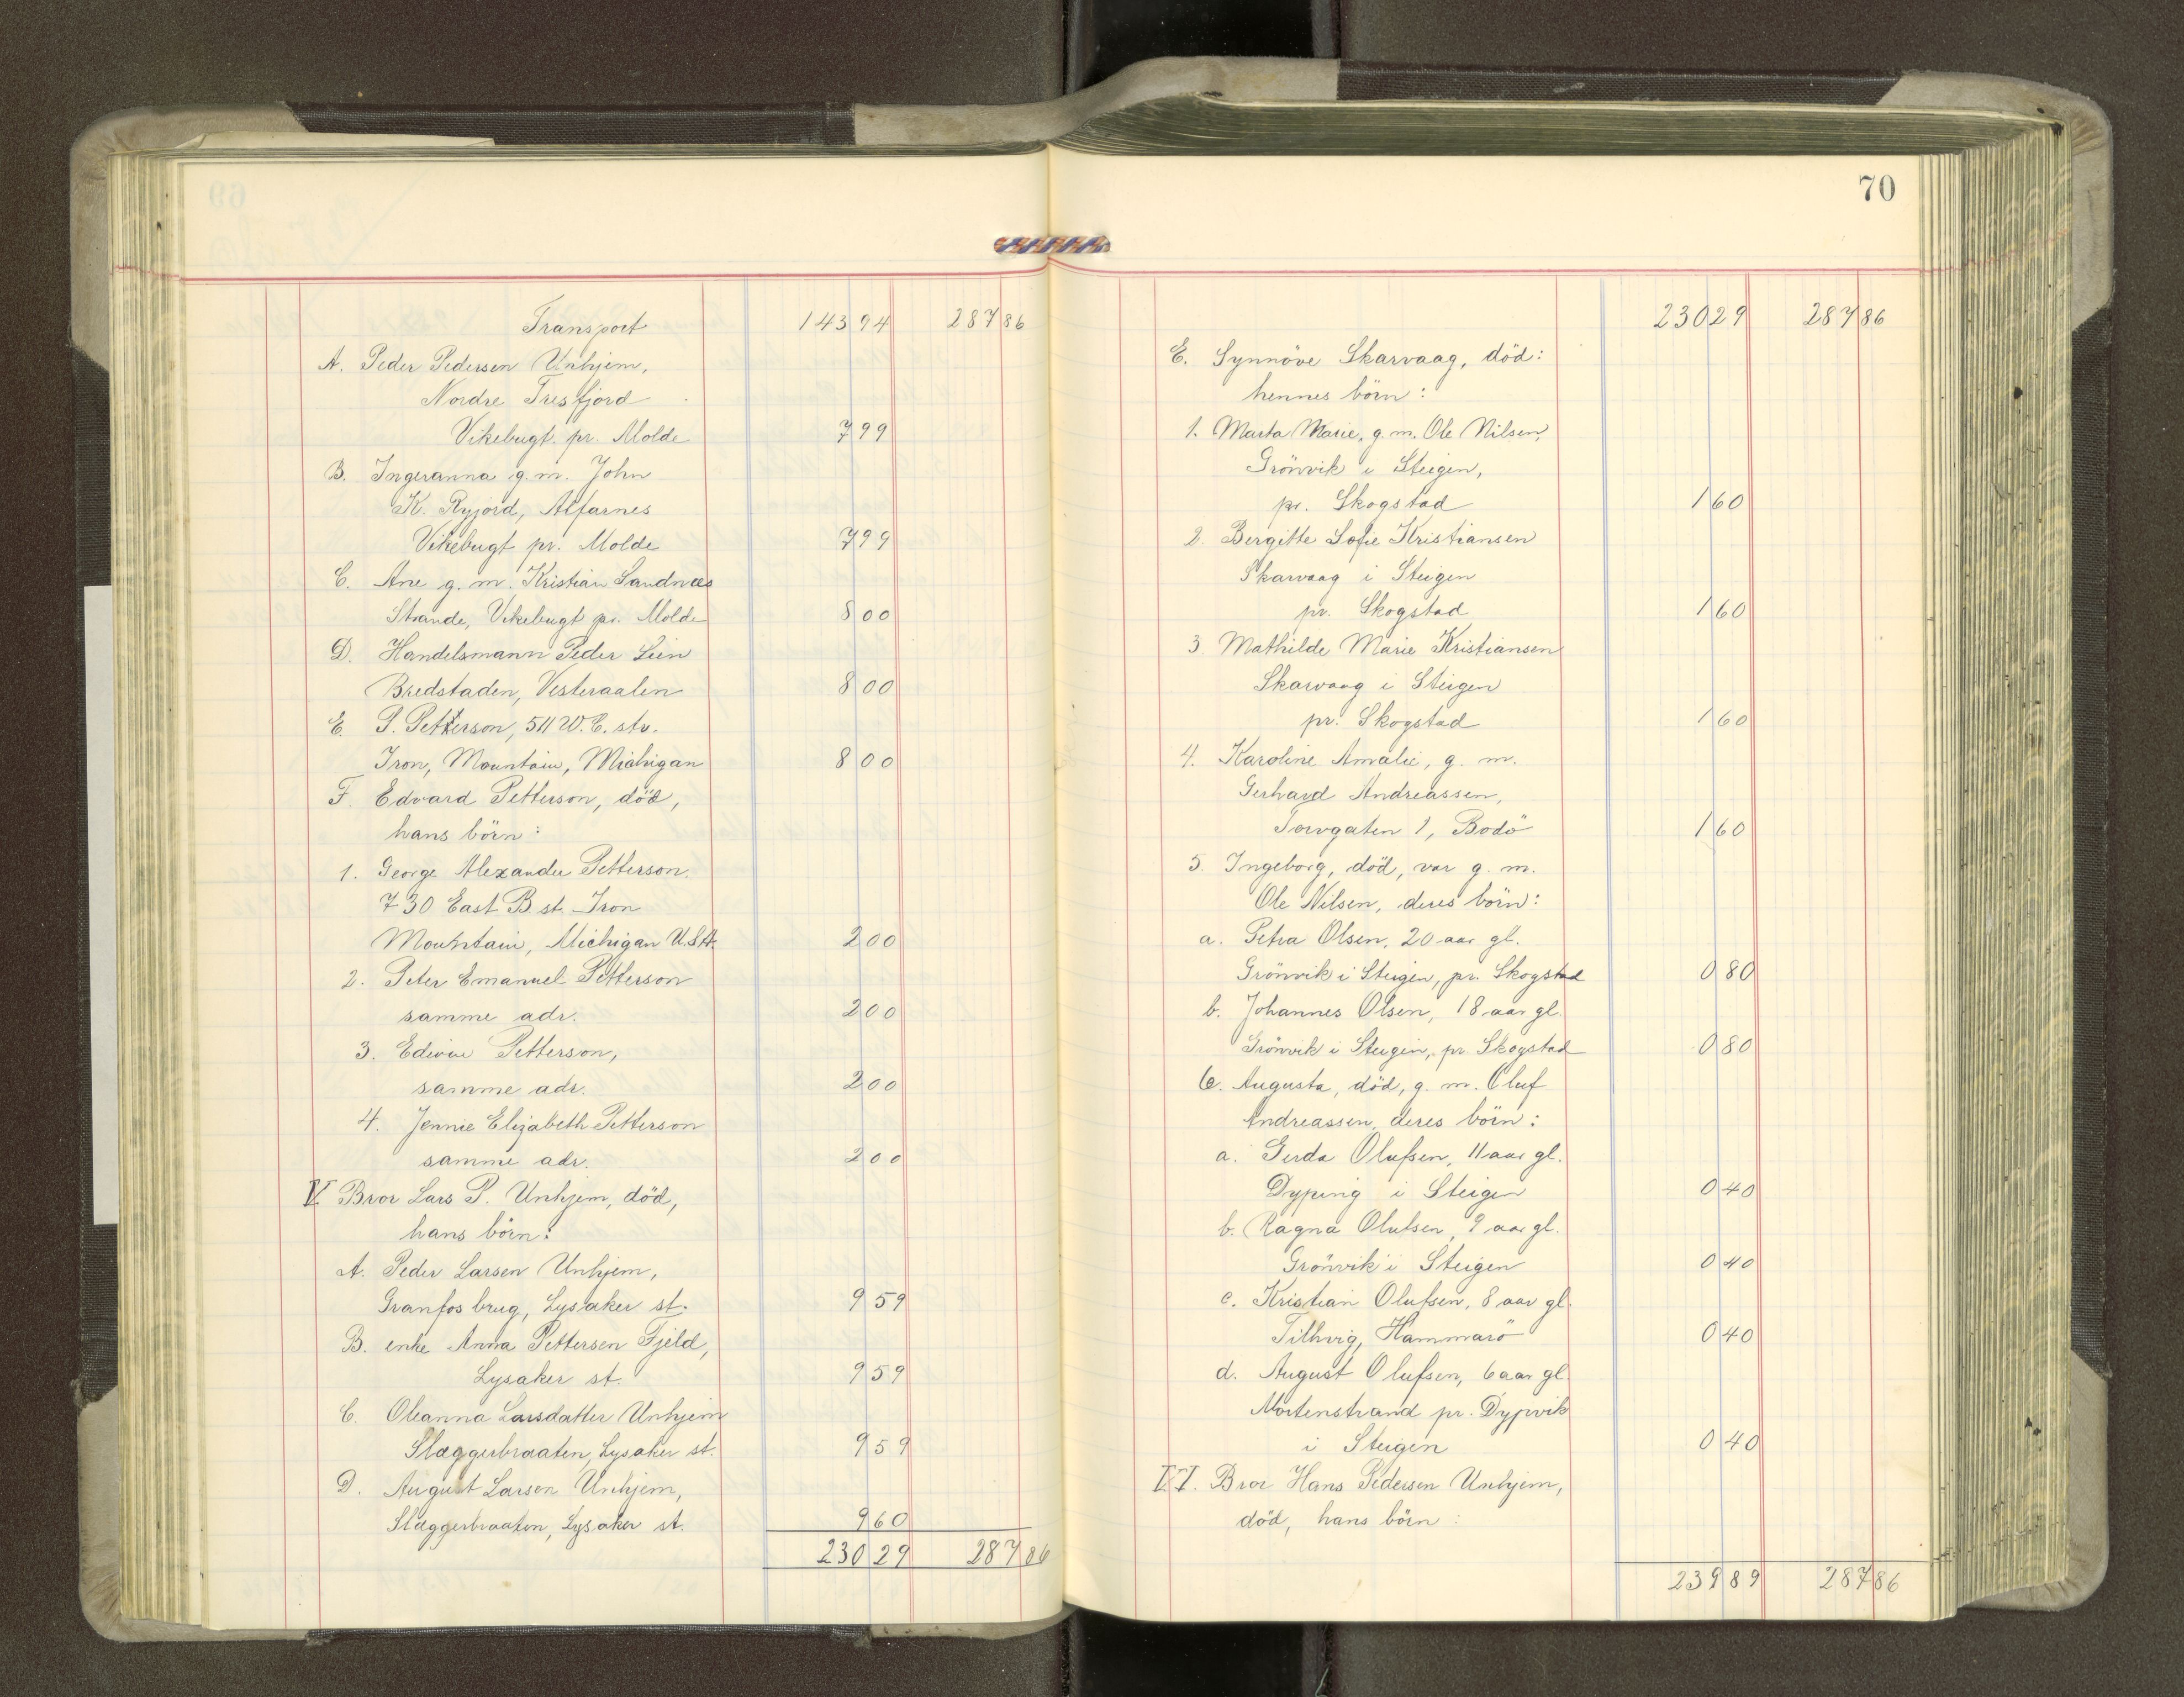 Transport 143 94 287 86
A. Peder Pedersen Unhjem,
Nordre Tresfjord
Vikebugt pr. Molde 7 99
B. Ingeranna g. m. John
K. Ryjord, Alfarnes
Vikebugt pr. Molde 7 99
C. Ane g. m. Kristian Sandnæs
Strande, Vikebugt pr. Molde 8 00
D. Handelsmann Peder Lien
Bredstaden, Vesteraalen 8 00
E. P. Petterson, 511 W. C. str.
Iron, Mountain, Michigan 8 00
F. Edvard Petterson, död,
hans börn:
1. George Alexander Petterson.
730 East B st. Iron
Mountain, Michigan U.S.A. 2 00
2. Peter Emanuel Petterson
samme adr. 2 00
3. Edwin Petterson,
samme adr. 2 00
4. Jennie Elizabeth Petterson
samme adr. 2 00
V. Bror Lars P. Unhjem, död,
hans börn:
A. Peder Larsen Unhjem,
Granfos brug, Lysaker st. 9 59
B. enke Anna Pettersen Fjeld,
Lysaker st. 9 59
C. Oleanna Larsdatter Unhjem
Slæggerbraaten, Lysaker st. 9 59
D. August Larsen Unhjem,
Slæggerbraaten, Lysaker st. 9 60
230 29 287 86
70
230 29 287 86
E. Synnöve Skarvaag, död:
hennes börn:
1. Marta Marie, g. m. Ole Nilsen,
Grönvik i Steigen,
pr. Skogstad 1 60
2. Bergitte Sofie Kristiansen
Skarvaag i Steigen
pr. Skogstad 1 60
3 Mathilde Marie Kristiansen
Skarvaag i Steigen
pr. Skogstad 1 60
4. Karoline Amalie, g. m.
Gerhard Andreassen,
Torvgaten 1, Bodö 1 60
5. Ingeborg, död, var g. m.
Ole Nilsen, deres börn:
a. Petra Olsen, 20 aar gl.
Grönvik i Steigen, pr. Skogstad 0 80
b. Johannes Olsen, 18 aar gl.
Grönvik i Steigen, pr. Skogstad 0 80
6. Augusta, död, g. m. Oluf
Andreassen, deres börn:
a. Gerda Olufsen, 11 aar gl.
Dyping i Steigen 0 40
b. Ragna Olufsen, 9 aar gl.
Grönvik i Steigen 0 40
c. Kristian Olufsen, 8 aar gl.
Tilhvig, Hammarö 0 40
d. August Olufsen, 6 aar gl
Mortenstrand pr. Dypvik
i Steigen 0 40
VI. Bror Hans Pedersen Unhjem,
död, hans börn:
239 89 287 86